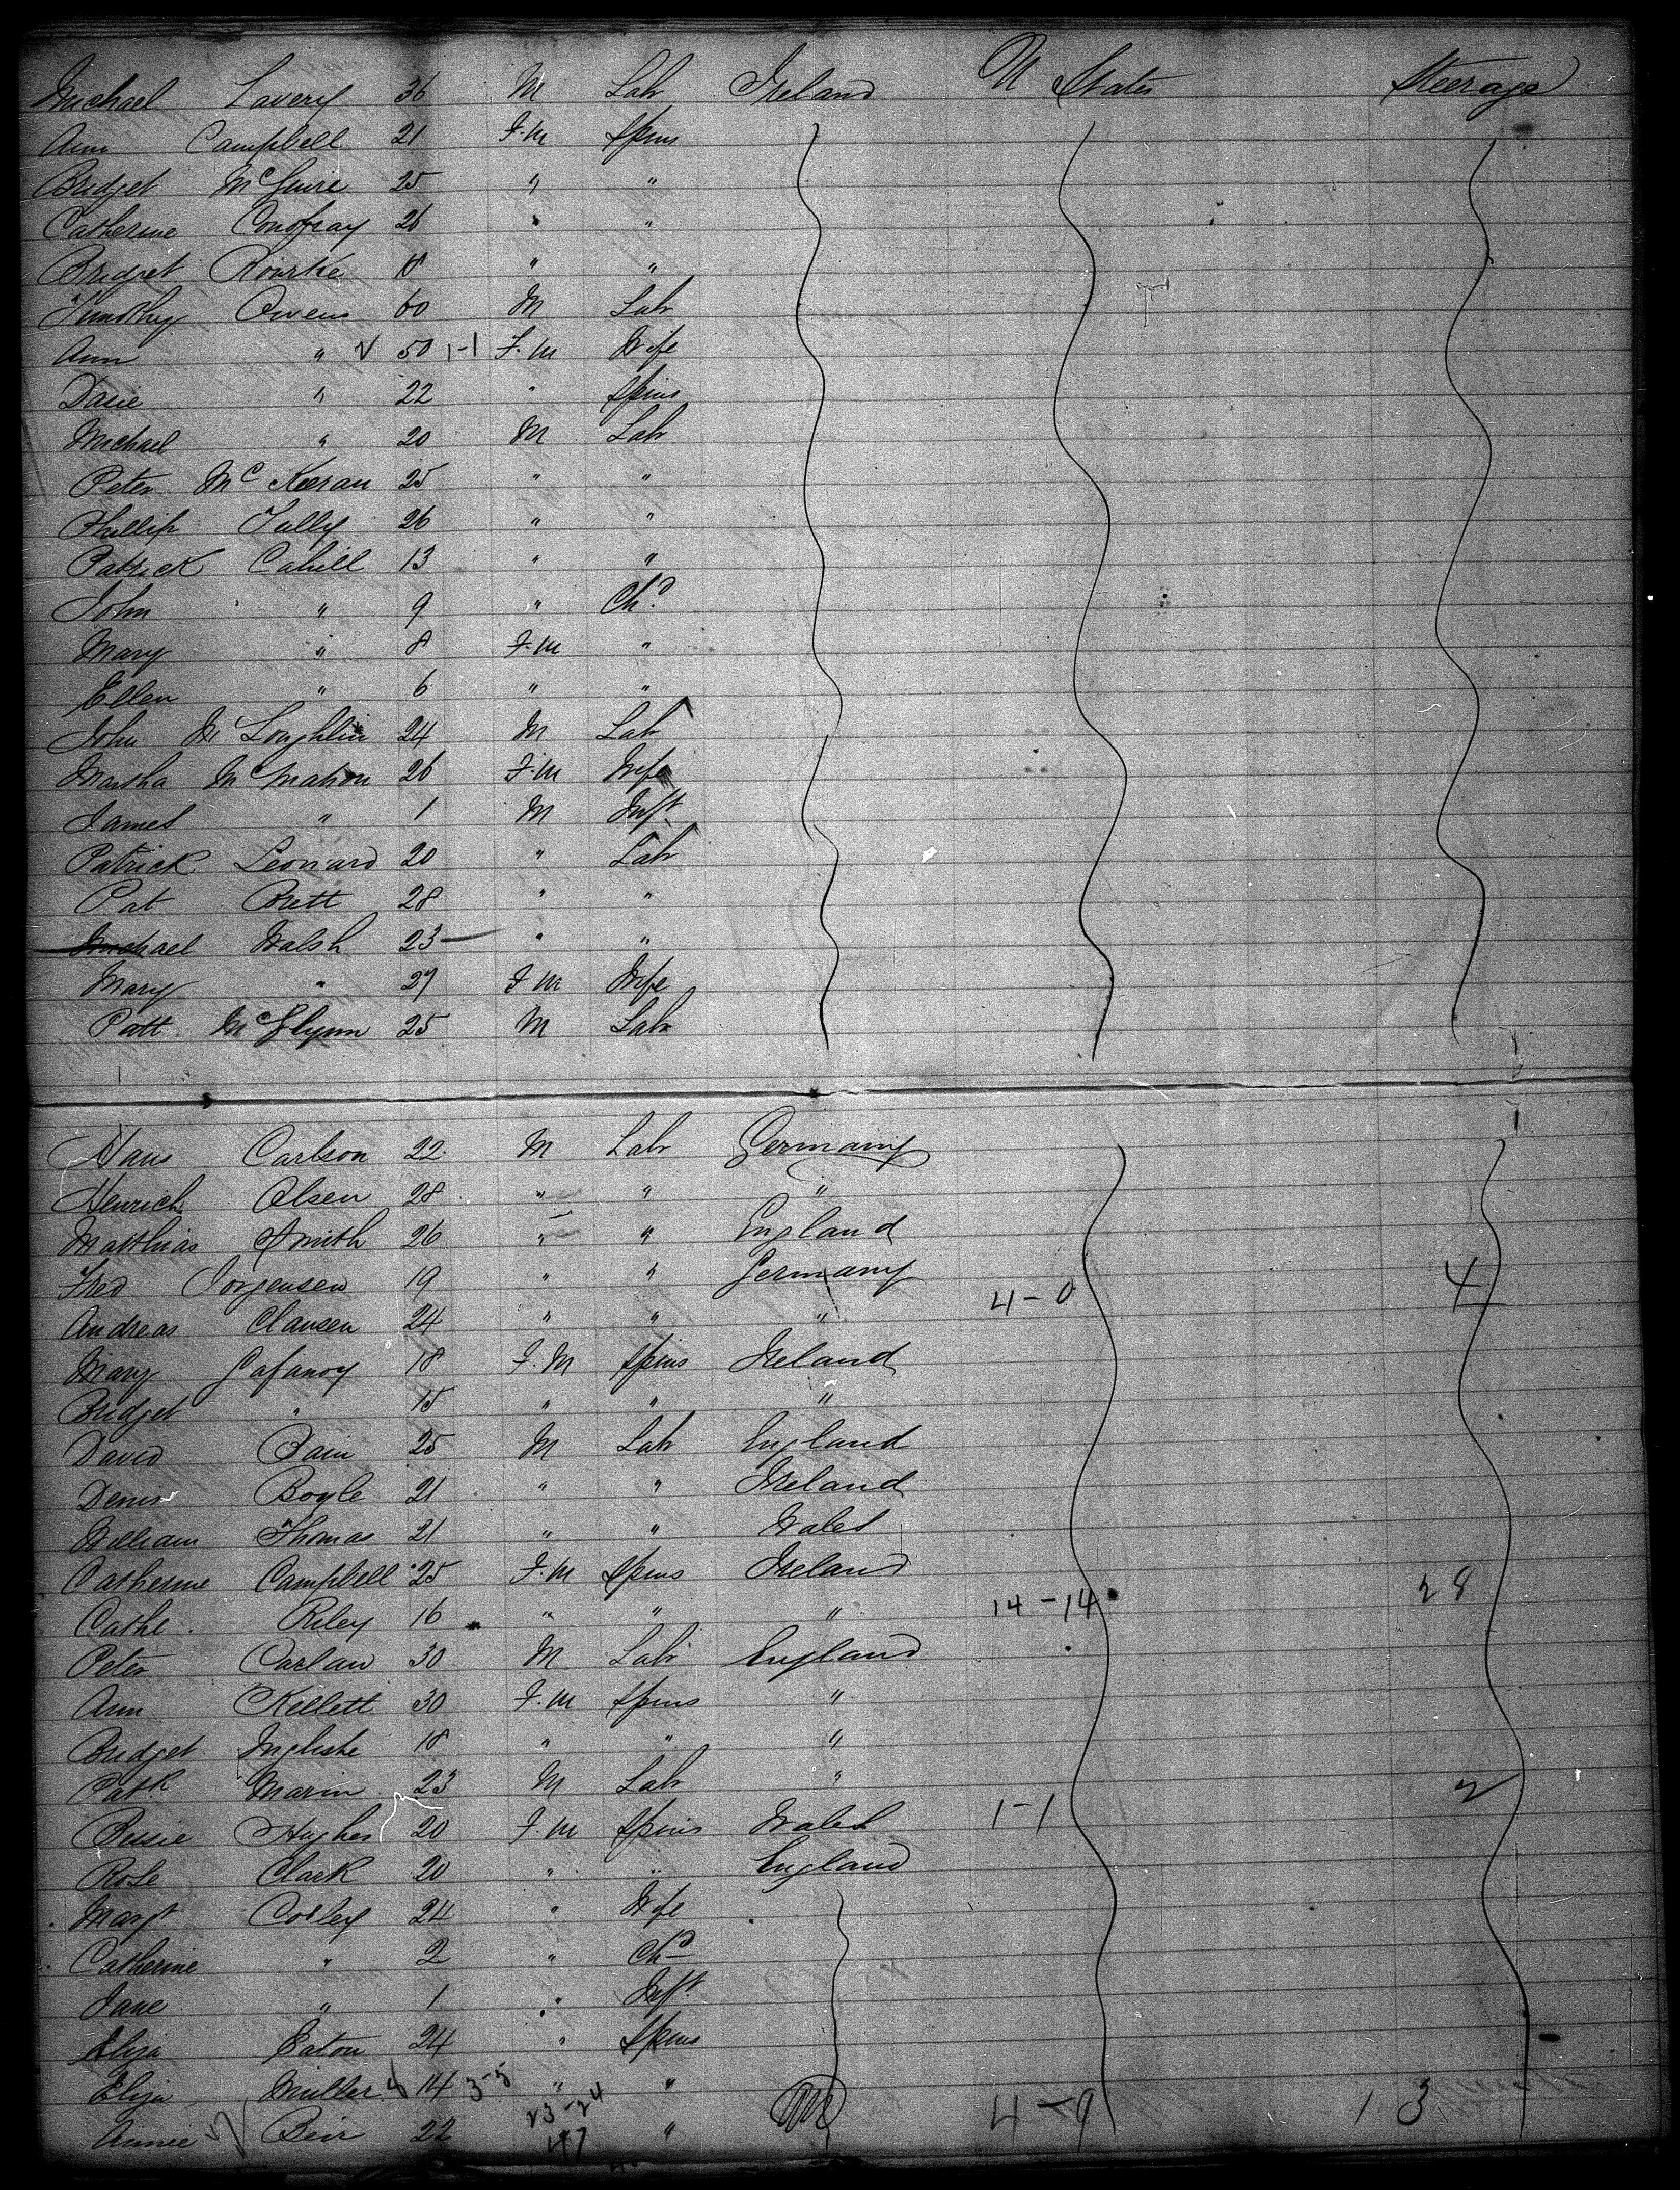 Michael Lavery 36 M Lab Ireland U States Steerage
Ann Campbell 21 F.M Spins
Bridget McGuire 25 " "
Catherine Conofray 26 " "
Bridget Rourke 18 " "
Timothy Owens 60 M Lab
Ann " 50 1-1 F.M Wife
Dasie " 22 " Spins
Michael " 20 M Lab
Peter Mc Keeran 25 " "
Phillip Tully 26 " "
Patrick Cahill 13 " "
John " 9 " Chd
Mary " 8 F.M "
Ellen " 6 " "
John McLoughlin 24 M Lab
Martha McMahon 26 F.M Wife
James " 1 M Inft
Patrick Leonard 20 " Lab
Pat Brett 28 " "
Michael Walsh 23 " "
Mary " 27 F M Wife
Patt McGlynn 25 M Lab
Hans Carlson 22 M Lab Germany
Henrich Olsen 28 " " "
Matthias Smith 26 " " England
Fred Jorgensen 19 " " Germany 4
Andreas Clausen 24 " " " 4-0
Mary Gafanoy 18 F.M Spins Ireland
Bridget " 15 " " "
David Bain 25 M Lab England
Denis Boyle 21 " " Ireland
William Thomas 21 " " Wales
Catherine Campbell 25 F.M Spins Ireland 28
Cathe Riley 16 " " " 14-14
Peter Carlan 30 M Lab England
Ann Kellett 30 F.M Spins "
Bridget Inglishe 18 " " "
Patk Marin 23 M Lab " 2
Bessie Hughes 20 F.M Spins Wales 1-1
Rose Clark 20 " " England
Margt Cosley 24 " Wife
Catherine " 2 " Chd
Jane " 1 " Inft
Eliza Eaton 24 " Spins
Eliza Muller 14 3-5 " "
Annie Beir 22 23-24 " 4-9 13
47